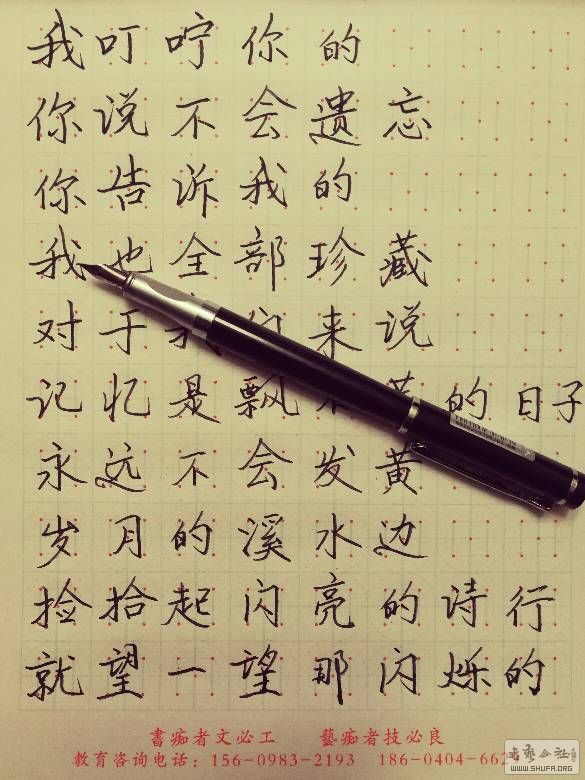 我叮咛你的
你说不会遗忘
你告诉我的
我也全部珍藏
对于我们来说
记忆是飘不落的日子
永远不会发黄
岁月的溪水边
捡拾起闪亮的诗行
就望一望那闪烁的
書痴者文必工 藝痴者技必良
教育咨询电话：156-0983-2193 186-0404-662
书艺公社
WWW.SHUFA.ORG